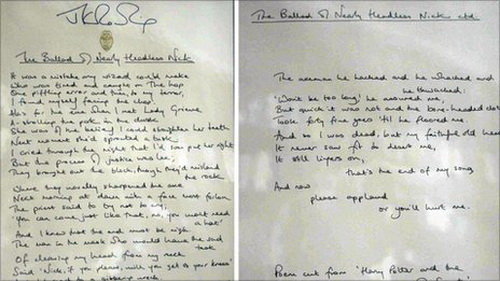 JKRowling
The Ballad of Nearly Headless Nick
It was a mistake any wizard could make
Who was tired and caught on the hop
One piffling error and then, to my terror,
I found myself facing the chop.
Alas for the eve when I met Lady Grieve
A strolling the park in the dusk
She was of the belief I could straighten her teeth
Next moment she'd sprouted a tusk.
I cried through the night that I'd soon put her right
But the process of justice was lax;
They brought out the block, though they'd mislaid
the rock
Where they usually sharpened the axe.
Next morning at dawn with a face most forlorn
The priest said to try not to cry,
'You can come just like that, no, you won't need
a hat'
And I knew that my end must be nigh.
The man in the mask who would have the sad
task
Of cleaving my head from my neck
Said 'Nick, if you please, will you get to your knees'
The Ballad of Nearly Headless Nick ctd.
The axeman he hacked and he whacked and
he thwacked:
'Won't be too long' he assured me,
But quick it was not and the bone-headed clot
Took forty five goes 'til he floored me.
And so I was dead, but my faithful old head
It never saw fit to desert me,
It still lingers on,
that's the end of my song
And now
please applaud
or you'll hurt me.
Poem cut from 'Harry Potter and the